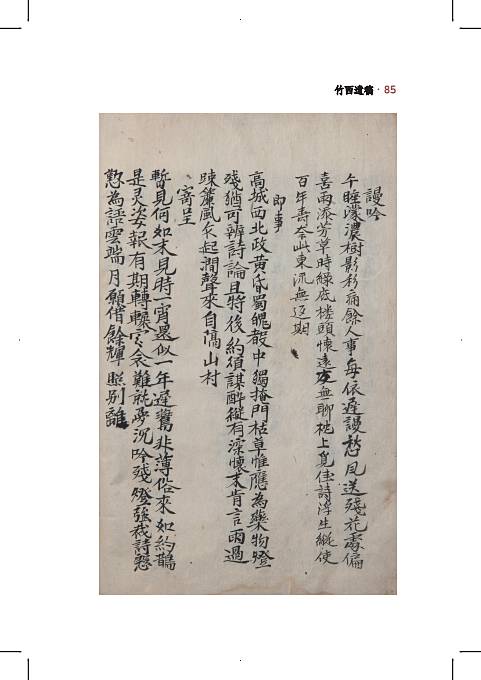 竹西遺稿 · 85
謾吟
午睡濛濃樹影移病餘人事每依遲謾愁風送殘花處偏
喜雨添芳草時綠底樓頭懷遠友無聊枕上覓佳詩浮生縱使
百年壽奈此東流無返期
即事
高城西北政黃昏蜀魄聲中獨掩門枯草惟應為藥物燈
殘猶可辨詩論且特後約須謀醉縱有深懷未肯言雨過
踈簾風衣起澗聲來自隔山村
寄呈
暫見何如未見時一宵還似一年遲舊非薄俗來如約鵲
是灵姿報有期轉轢寒衾難就夢沉吟殘燈強裁詩慇
懃為語雲端月願借餘輝照別離